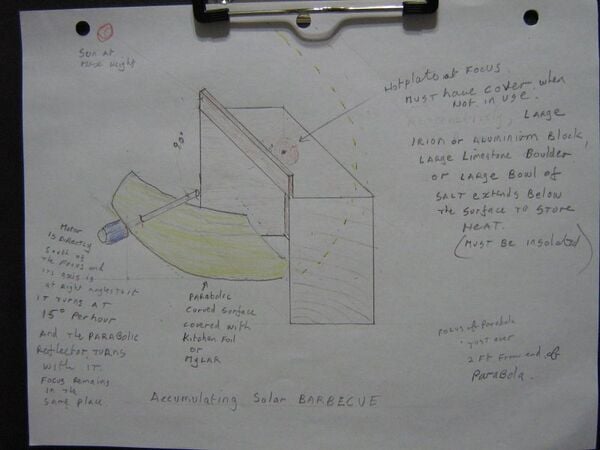 Sun at
Hotplate at Focus
MUST have Cover when
Not in use.
Alternatively, Large
IRION or ALUMINIUM Block,
Large Limestone Boulder
or Large Bowl of
SALT extends Below
The Surface To Store
Heat.
(MUST Be INSOLATED)
90°
Motor
is Directly
South of
The Focus and
its axis is
at Right angles to it
IT TURNS AT
15° Per hour
And The PARABOLIC
Reflector, TURNS
WITH IT.
Focus Remains
in The
Same Place.
A
PARABOLIC
Curved Surface
covered with
Kitchen Foil
or
MyLAR
Focus of Parabola
just over
2 Ft From end of
ParaBola.
Accumulating Solar BARBECUE